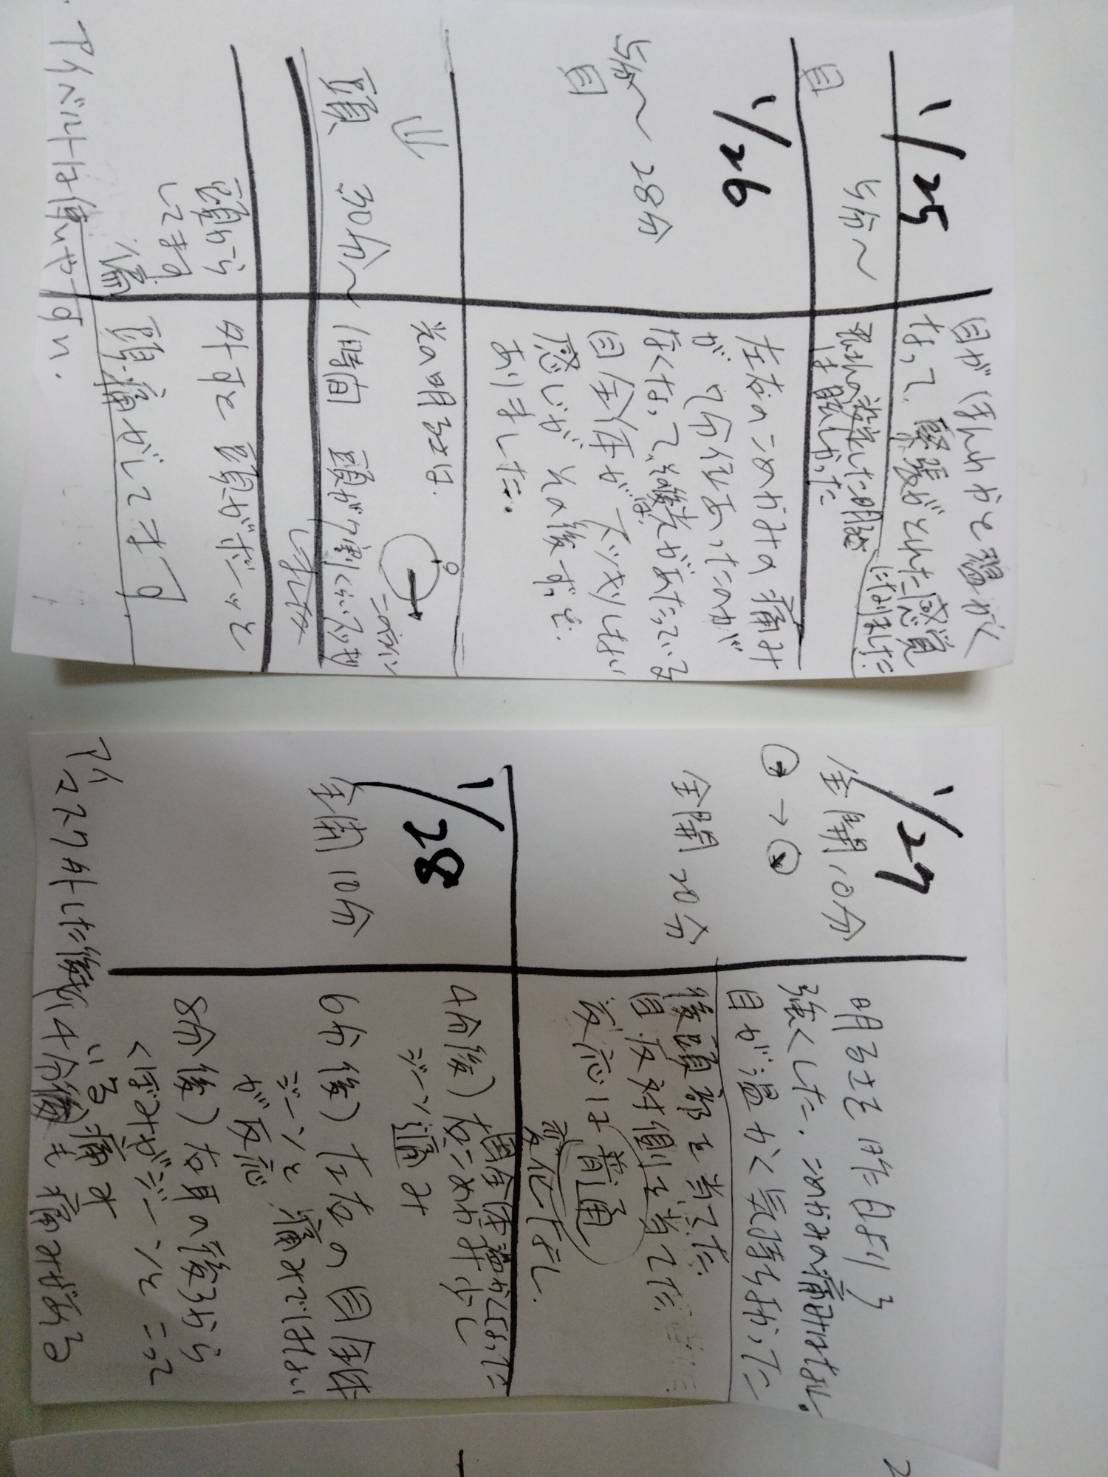 1/25
目
5分〜
目がほんわかと温かく
なって、緊張がとれた感覚
になりました
それの設定した明るさ
は眩しかった
1/26
5分〜28分
目
左右のこめかみの痛み
が7分位あったのが
なくなって、その後光があたっている
目全体がスッキリしない
感じがその後ずっと
ありました。
⇓
光の明るさは
このくらい
頭 30分〜
1時間 頭が7割くらいスッキリ
しました
頭から
してます
外すと頭がボーッと
頭痛がしてます
アイベルトは使いやすい。
1/27
全開10分
→
明るさを昨日より
強くした。こめかみの痛みはなし。
目が温かく気持ち良かった
全開20分
後頭部を当てた
目反対側を当てた
反応は普通
変化なし
1/28
全開10分
目全体温かくなった
4分後)右こめかみが少し
ジーン痛み
6分後)左右の目全体
ジーンと痛みではない
が反応
8分後)右耳の後ろから
くぼみがジーンとこって
いる痛み
アイマスク外した後、14分後も痛みがある